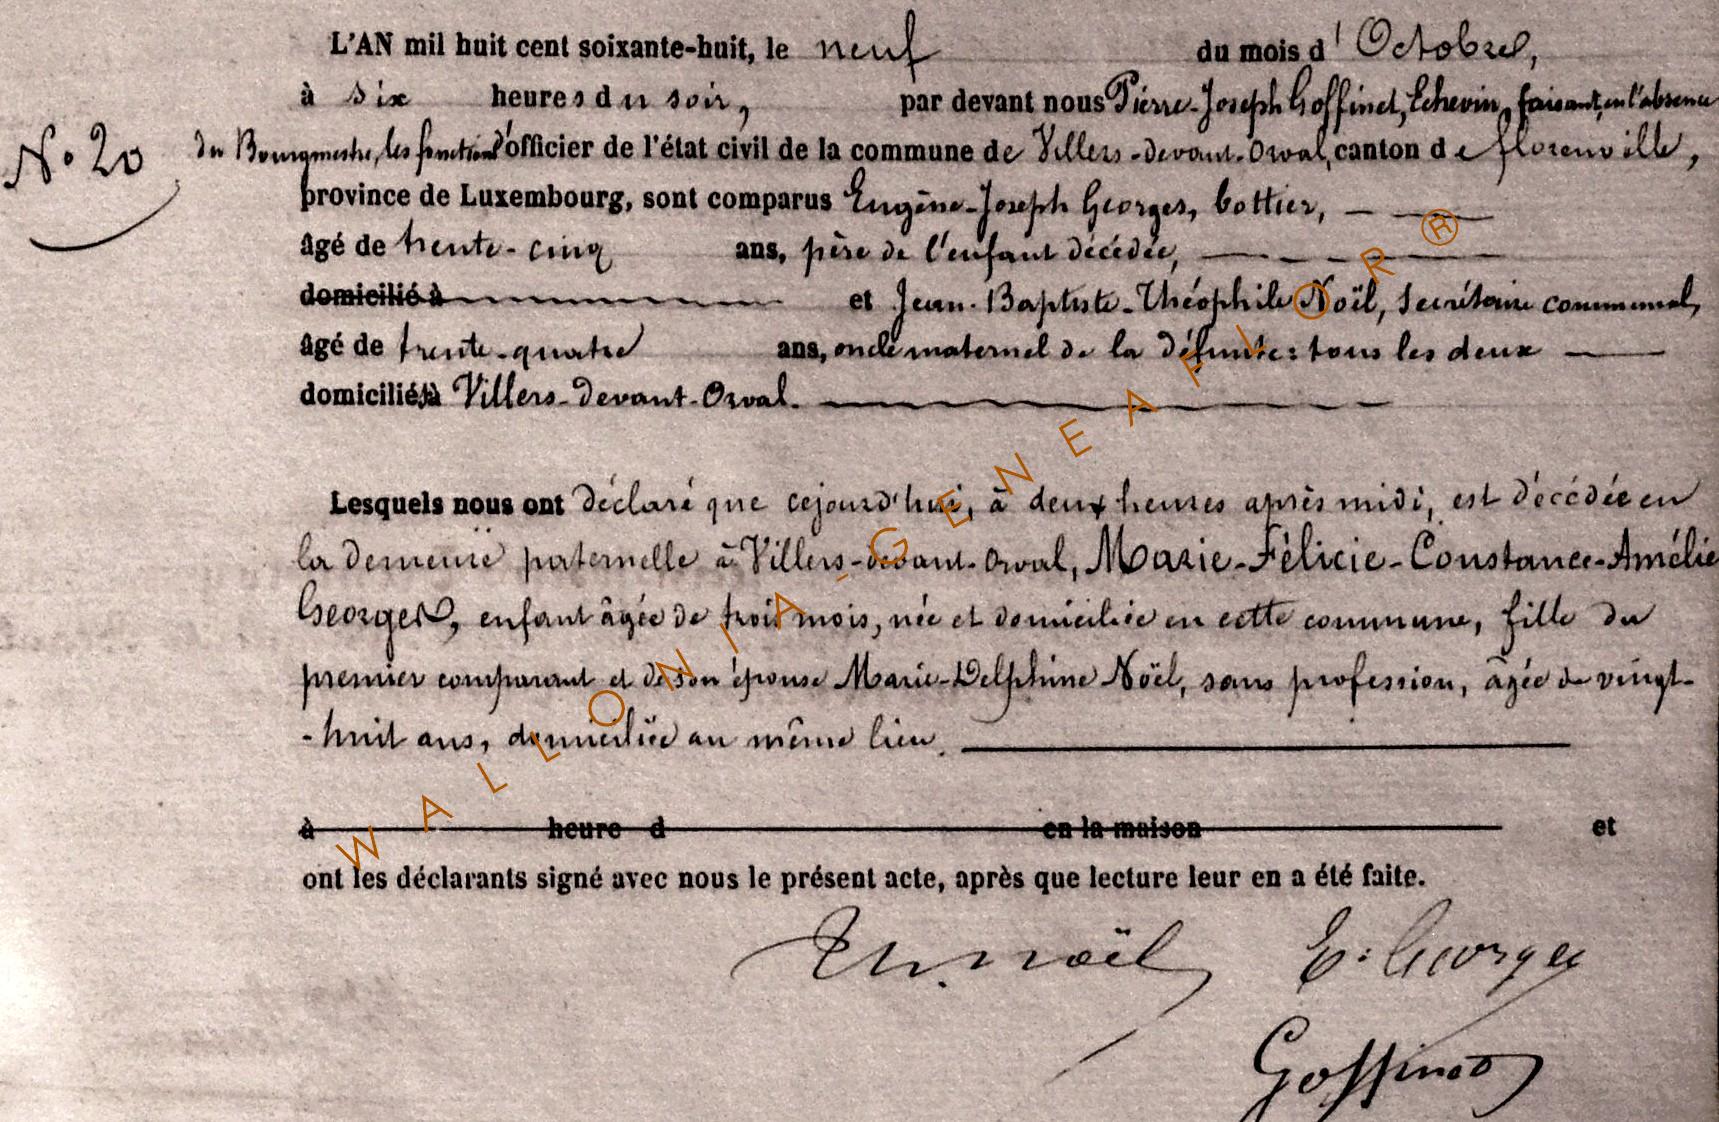 L'AN mil huit cent soixante-huit, le neuf du mois d'Octobre,
à six heures du soir, par devant nous Pierre-Joseph Goffinet, Echevin, faisant, en l'absence
N° 20 du Bourgmestre, les fonctions d'officier de l'état civil de la commune de Villers-devant-Orval, canton de florenville,
province de Luxembourg, sont comparus Eugène-Joseph Georges, Cottier,
âgé de trente-cinq ans, père de l'enfant décédée,
domicilié à et Jean-Baptiste-Théophile Noël, Secrétaire communal,
âgé de trente-quatre ans, oncle maternel de la défunte: tous les deux
domiciliés à Villers-devant-Orval.
Lesquels nous ont déclaré que cejourd'hui, à deux heures après midi, est décédée en
la demeure paternelle à Villers-devant-Orval, Marie-Félicie-Constance-Amélie
Georges, enfant âgée de trois mois, née et domiciliée en cette commune, fille du
premier comparant et de son épouse Marie-Delphine Noël, sans profession, âgée de vingt-
-huit ans, domiciliée au même lieu.
à heure d en la maison et
ont les déclarants signé avec nous le présent acte, après que lecture leur en a été faite.
Th. Noël E: Georges
Goffinet
WALLONIA-GENEAFLOR®